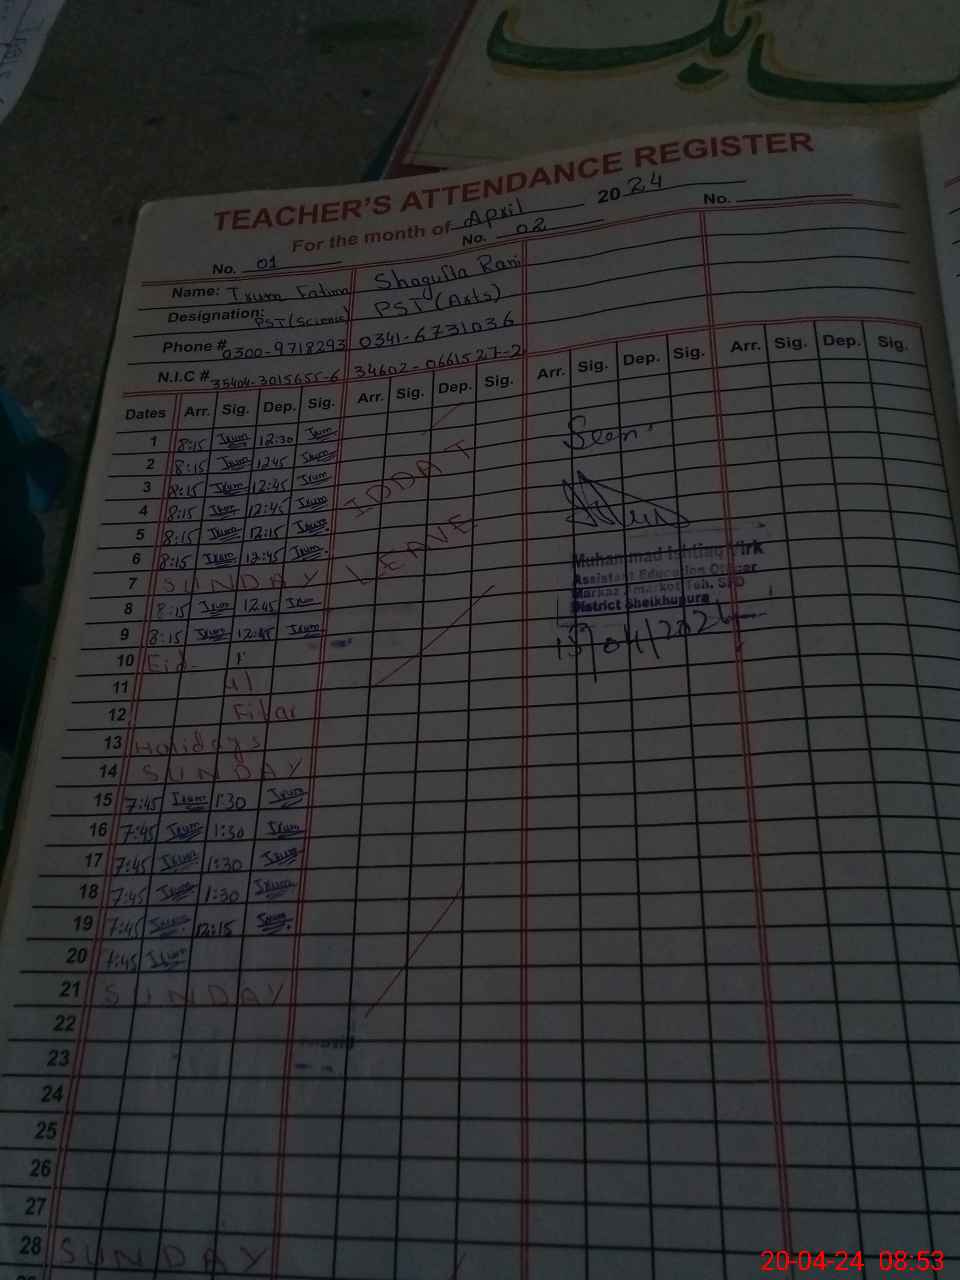 TEACHER'S ATTENDANCE REGISTER
For the month of April 2024
No. 01 No. 02 No.
Name: Irum Fatima Shagufta Rani
Designation: PST (Science) PST (Arts)
Phone # 0300-9718293 0341-6731036
N.I.C # 35404-3015655-6 34602-0661527-2
Dates Arr. Sig. Dep. Sig. Arr. Sig. Dep. Sig. Arr. Sig. Dep. Sig. Arr. Sig. Dep. Sig.
1 8:15 Irum 12:30 Irum
2 8:15 Irum 12:45 Irum
3 8:15 Irum 12:45 Irum
4 8:15 Irum 12:45 Irum
5 8:15 Irum 12:15 Irum
6 8:15 Irum 12:45 Irum
7 SUNDAY
8 8:15 Irum 12:45 Irum
9 8:15 Irum 12:45 Irum
10 Eid
11 ul
12 Fitar
13 Holidays
14 SUNDAY
15 7:45 Irum 1:30 Irum
16 7:45 Irum 1:30 Irum
17 7:45 Irum 1:30 Irum
18 7:45 Irum 1:30 Irum
19 7:45 Irum 12:15 Irum
20 7:45 Irum
21 SUNDAY
22
23
24
25
26
27
28 SUNDAY
IDDAT
LEAVE
Seen
Muhammad Ishtiaq Virk
Assistant Education Officer
Markaz Amarkot Teh. SFD
District Sheikhupura
15/04/2024
20-04-24 08:53